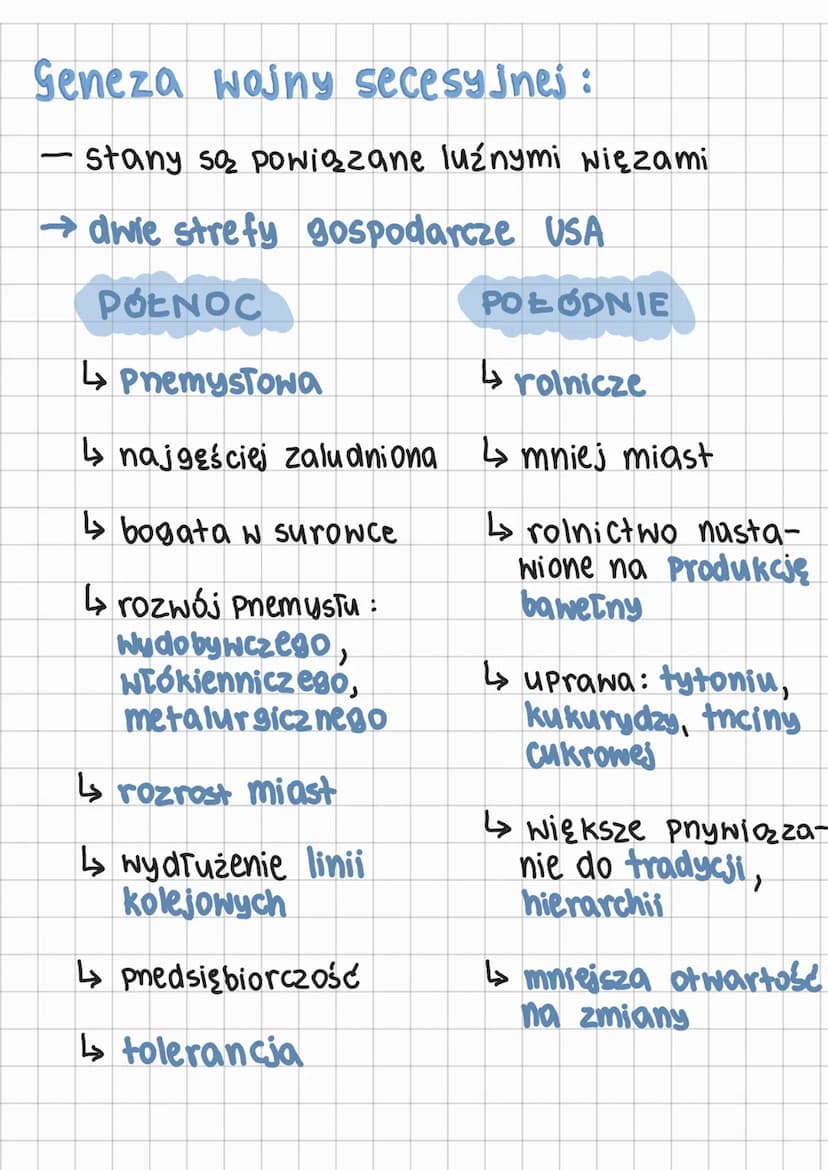 Geneza wojny secesyjnej:
— stany są powiązane luźnymi więzami
→ dwie strefy gospodarcze USA
PÓŁNOC
↳ przemysłowa
↳ najgęściej zaludniona
↳ bogata w surowce
↳ rozwój przemysłu:
wydobywczego,
włókienniczego,
metalurgicznego
↳ rozrost miast
↳ wydłużenie linii
kolejowych
↳ przedsiębiorczość
↳ tolerancja
POŁÓDNIE
↳ rolnicze
↳ mniej miast
↳ rolnictwo nasta-
wione na produkcję
bawełny
↳ uprawa: tytoniu,
kukurydzy, trzciny
cukrowej
↳ większe przywiąza-
nie do tradycji,
hierarchii
↳ mniejsza otwartość
na zmiany